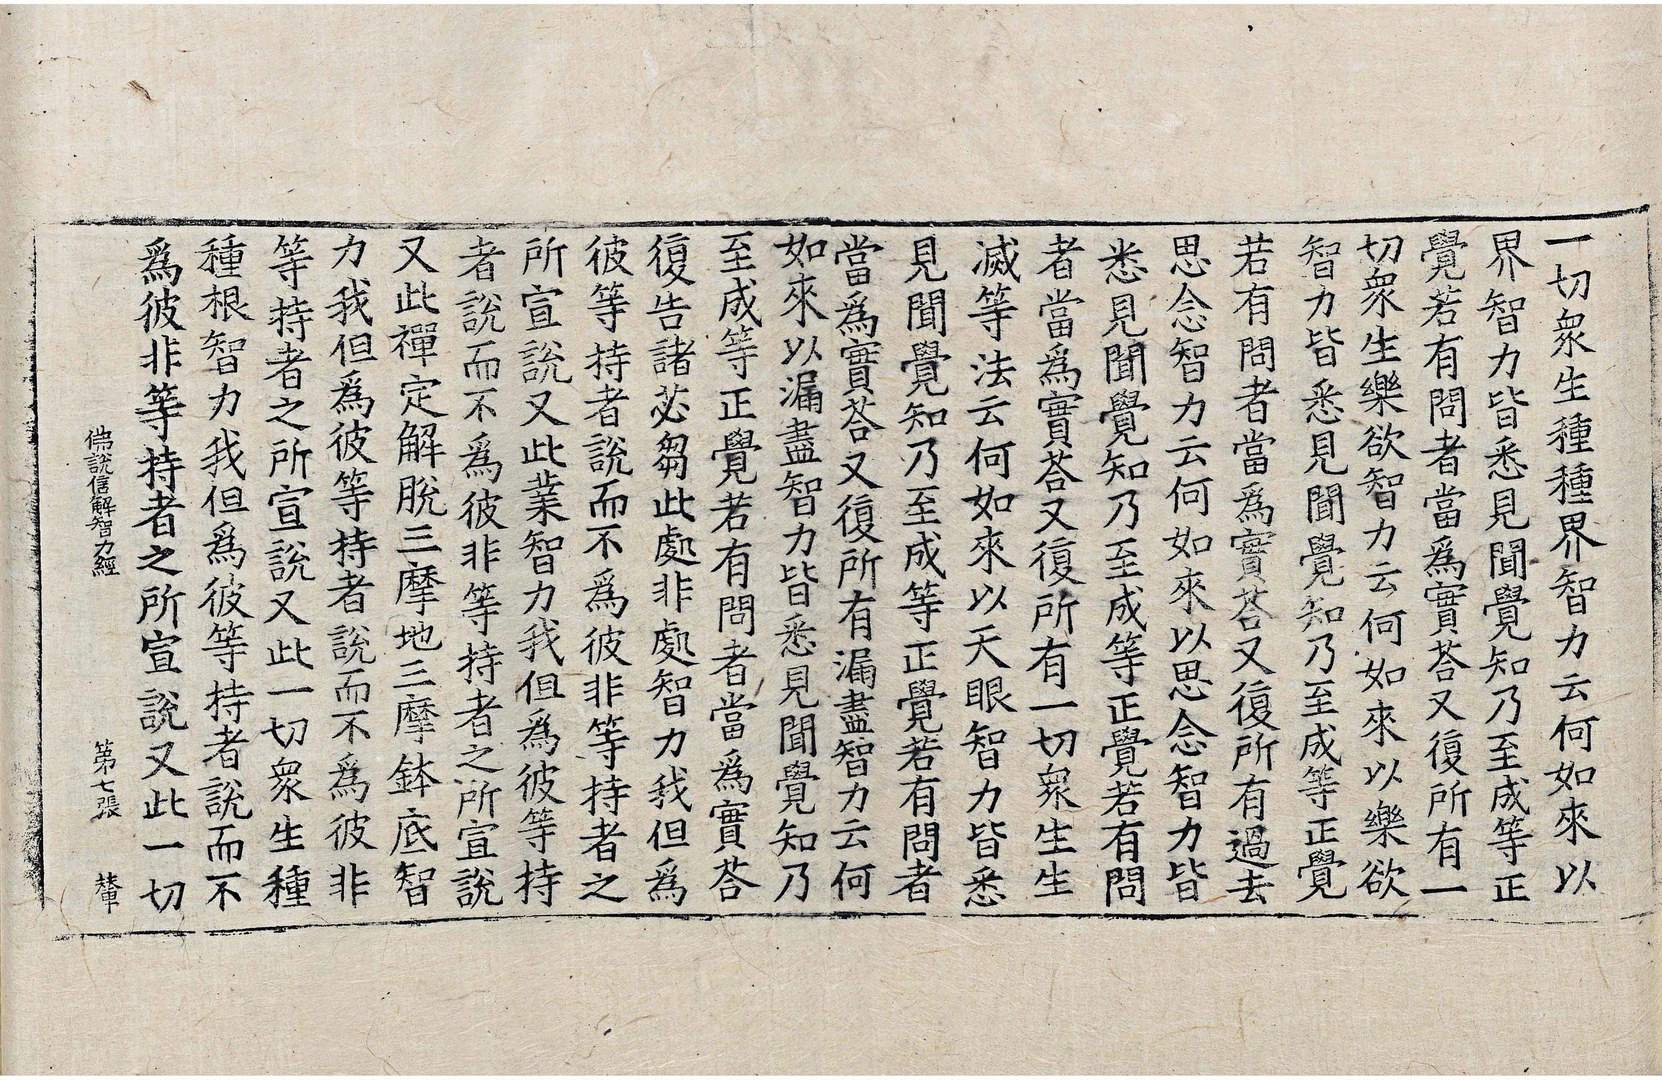 一切衆生種種界智力云何如來以
界智力皆悉見聞覺知乃至成等正
覺若有問者當爲實荅又復所有一
切衆生樂欲智力云何如來以樂欲
智力皆悉見聞覺知乃至成等正覺
若有問者當爲實荅又復所有過去
思念智力云何如來以思念智力皆
悉見聞覺知乃至成等正覺若有問
者當爲實荅又復所有一切衆生生
滅等法云何如來以天眼智力皆悉
見聞覺知乃至成等正覺若有問者
當爲實荅又復所有漏盡智力云何
如來以漏盡智力皆悉見聞覺知乃
至成等正覺若有問者當爲實荅
復告諸苾芻此處非處智力我但爲
彼等持者說而不爲彼非等持者之
所宣說又此業智力我但爲彼等持
者說而不爲彼非等持者之所宣說
又此禪定解脫三摩地三摩鉢底智
力我但爲彼等持者說而不爲彼非
等持者之所宣說又此一切衆生種
種根智力我但爲彼等持者說而不
爲彼非等持者之所宣說又此一切
佛說信解智力經 第七張